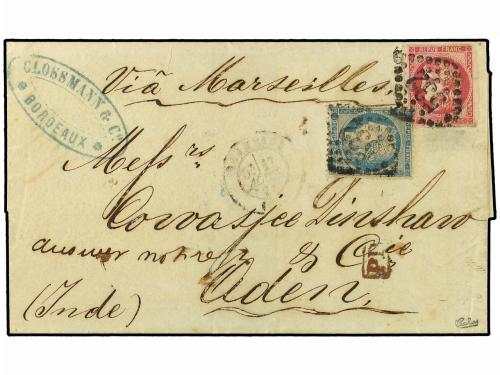 CLOSSMANN & Cº
BORDEAUX
Viâ Marseilles.
REPUB FRANC
Mess rs
Cowasjee Dinshaw
& Cie
Aden.
(Inde)
PD